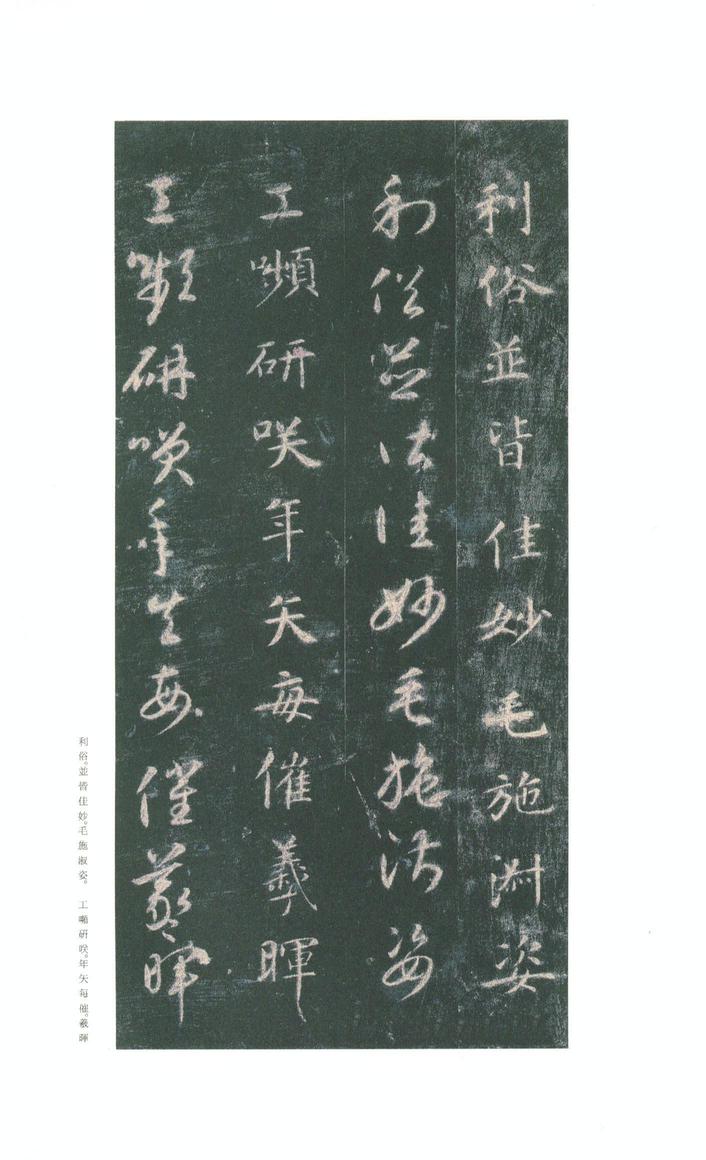 利俗並皆佳妙毛施淑姿
利俗並皆佳妙毛施淑姿
工嚬研咲年矢每催羲暉
工嚬研咲年矢每催羲暉
利俗。並皆佳妙。毛施淑姿。 工嚬研咲。年矢每催。羲暉